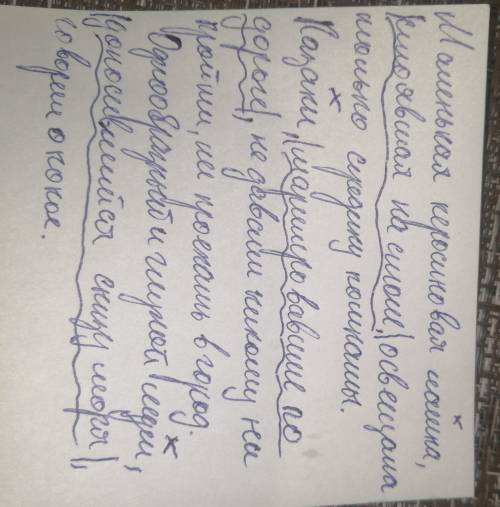 Маленькая керосиновая лампа,
стоявшая на столе, освещала
только средину комнаты.
Казаки, маршировавшие по
дороге, не давали никому ни
пройти, ни проехать в город.
Однообразный и глухой
доносившийся снизу моря,
говорил о покое.